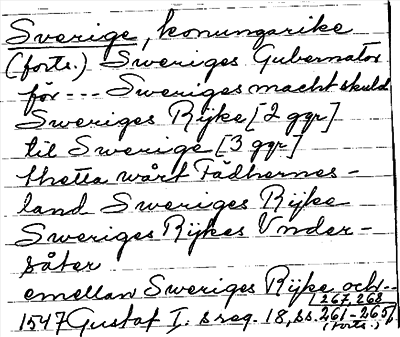 Sverige, konungarike
(forts.) Sweriges Gubernator
för --- Sweriges macht skuld
Sweriges Rijke [2 ggr]
til Swerige [3 ggr]
thetta wårt Fädhernes-
land Sweriges Rijke
Sweriges Rijkes Vnder-
såter
emellan Sweriges Rijke och--
267, 268
1547 Gustaf I: s reg. 18, ss. 261-265,
(forts.)